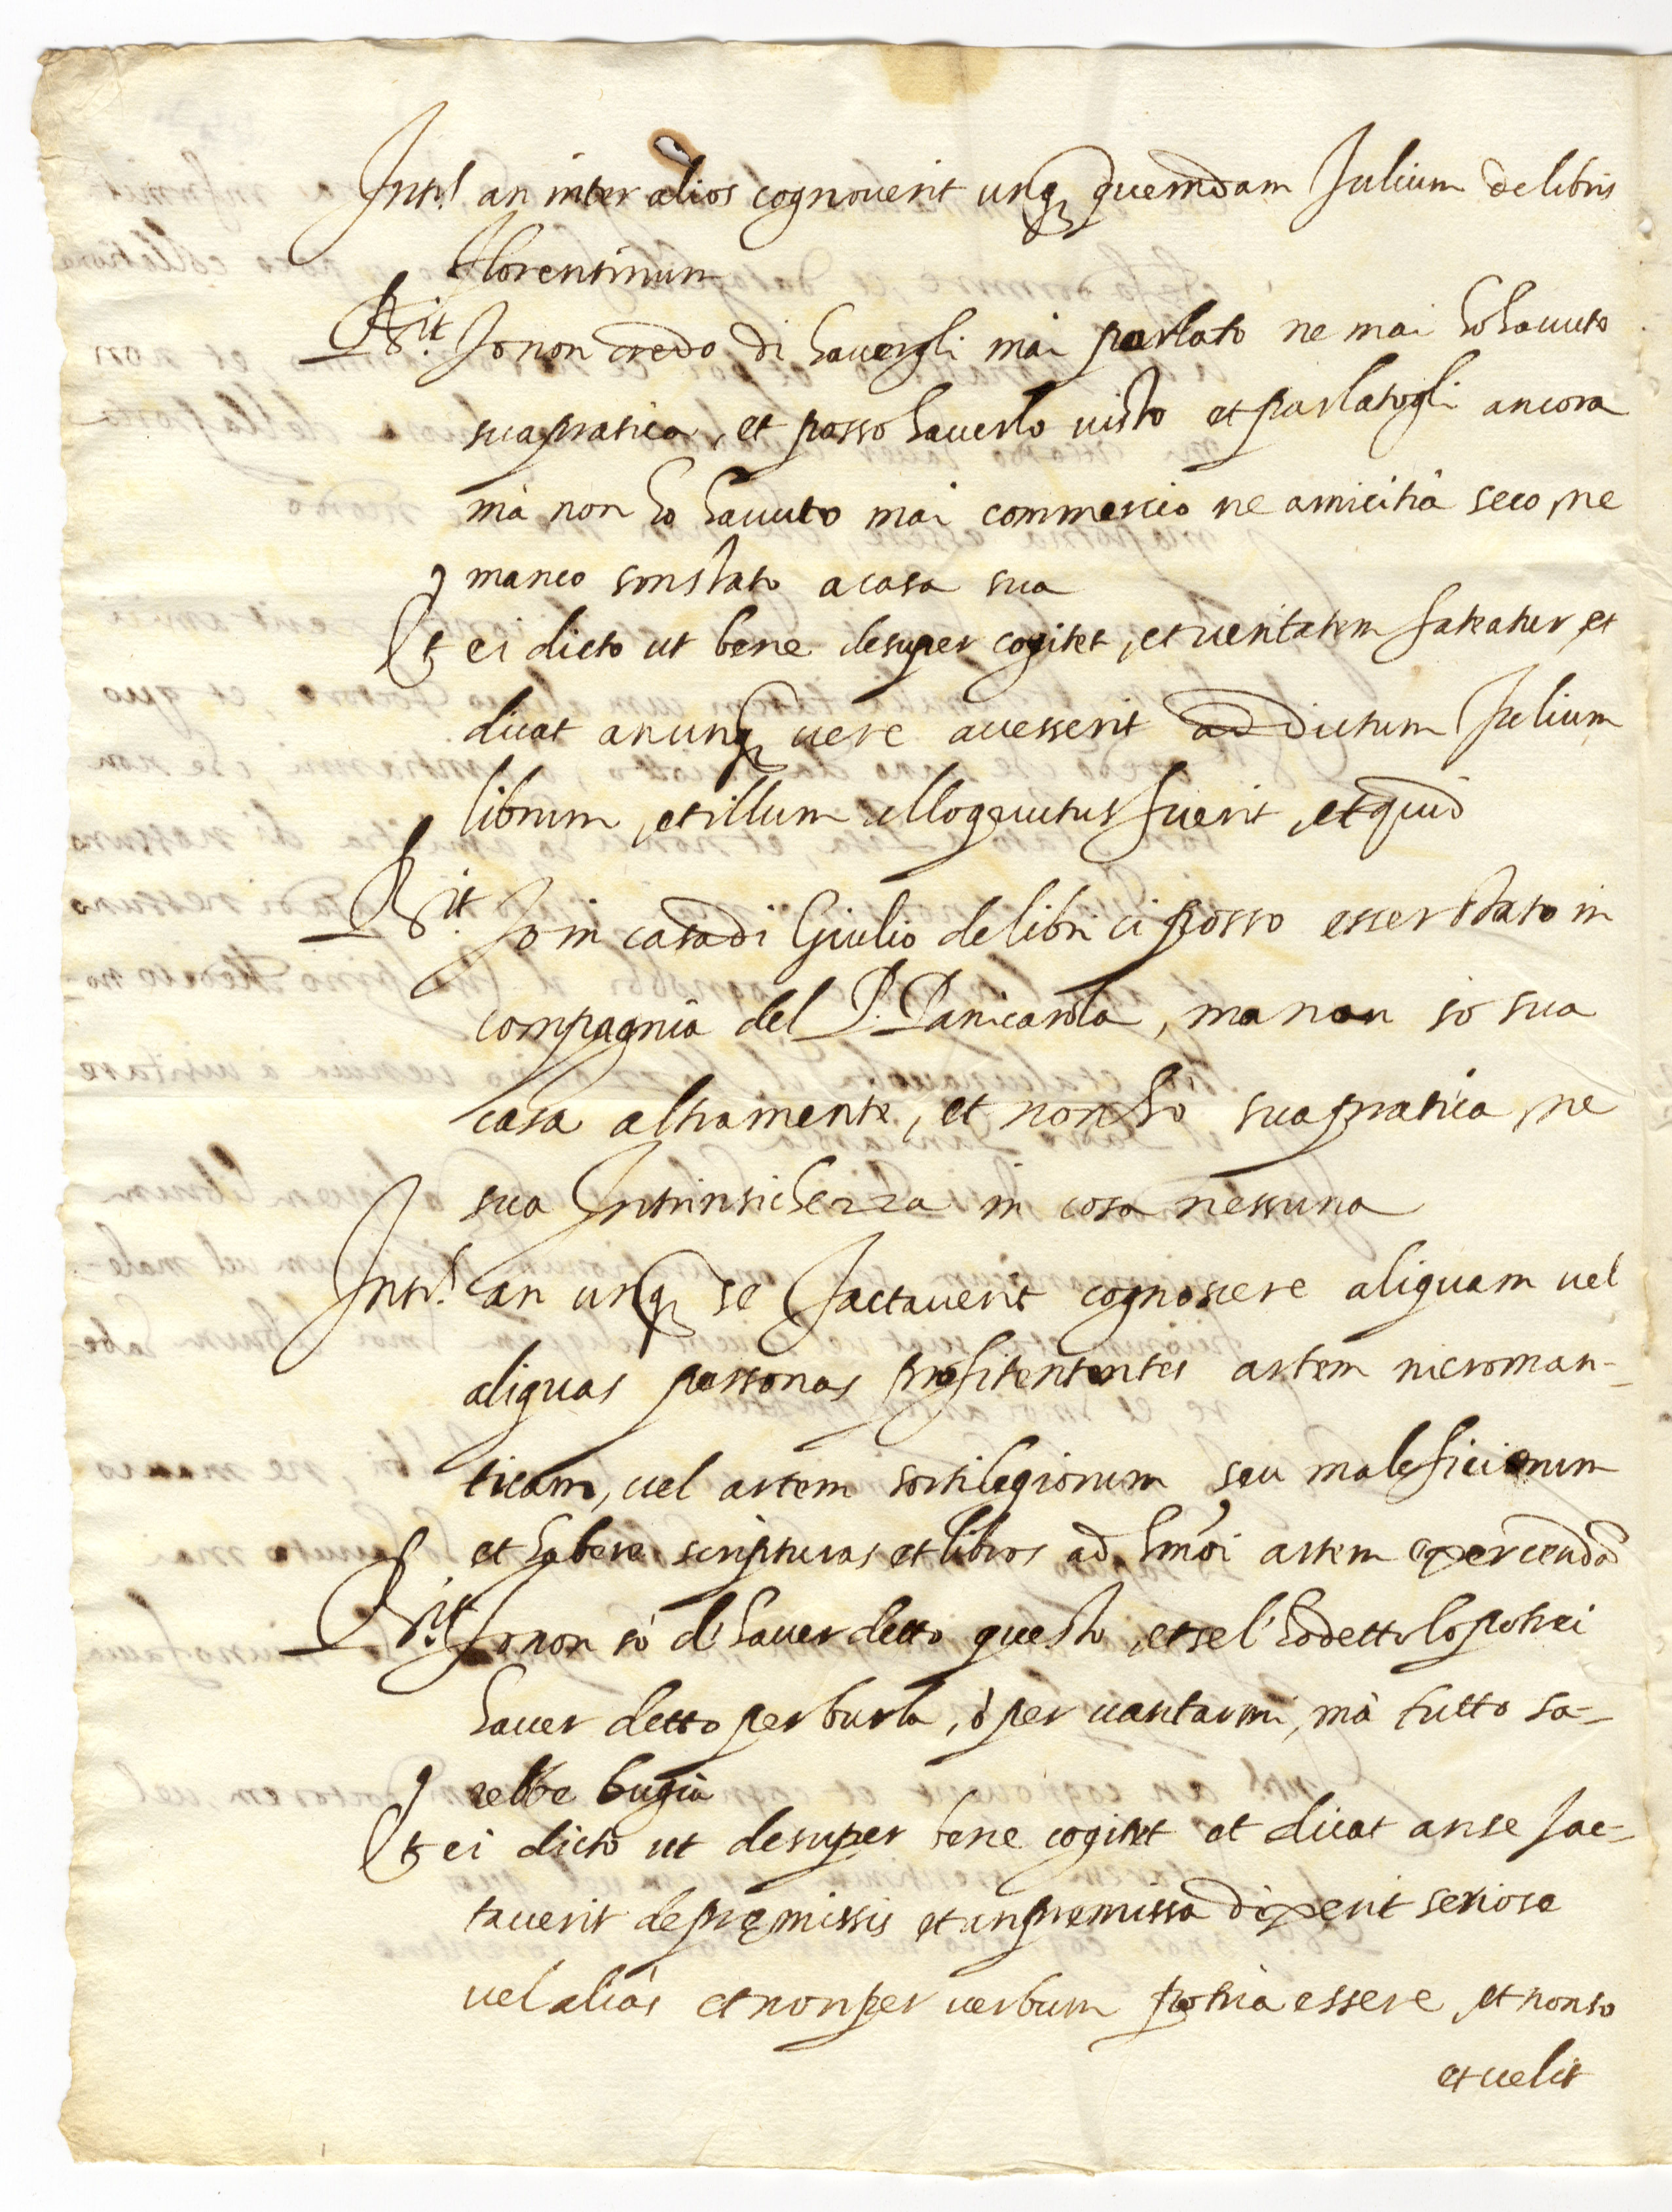 Intr. an inter alios cognoverit unq quemdam Julium de libris
florentinum
Rit Jo non credo di havergli mai parlato ne mai ho havuto
sua pratica, et posso haverlo visto et parlatogli ancora
mà non ho havuto mai commercio ne amicitia seco, ne
manco son stato a casa sua
Et ei dicto ut bene desuper cogitet, et veritatem fateatur, et
dicat an unq vere accesserit ad dictum Julium
librum, et illum alloquutus fuerit, et quid
Rit Jo in casa di Giulio de libri ci posso esser stato in
compagnia del P. Panicarola, ma non sò sua
casa altramente, et non hò sua pratica, ne
sua Intrinsichezza in cosa nessuna
Intr. an unq se Jactaverit cognoscere aliquam vel
aliquas personas profitentes artem nicroman-
ticam, vel artem sortilegiorum seu maleficiorum
et habere scripturas et libros ad hmõi artem exercendã
Rit Jo non sò d'haver detto questo, et se l'ho detto lo potrei
haver detto per burla, ò per vantarmi, mà tutto sa-
rebbe bugia
Et ei dicto ut desuper bene cogitet et dicat an se Jac-
taverit de premissis et an premissa dixerit seriose
vel aliàs et non per verbum potria essere, et non so
et velit